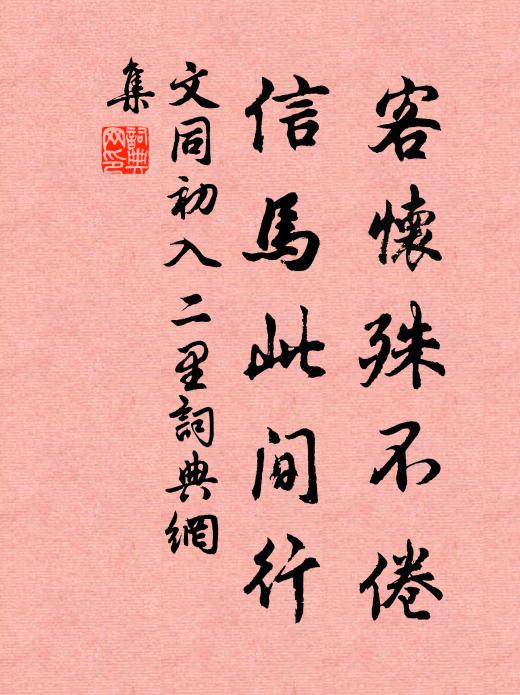 客懷殊不倦
信馬此間行
文同初入二里詞典網
集
詞典網印